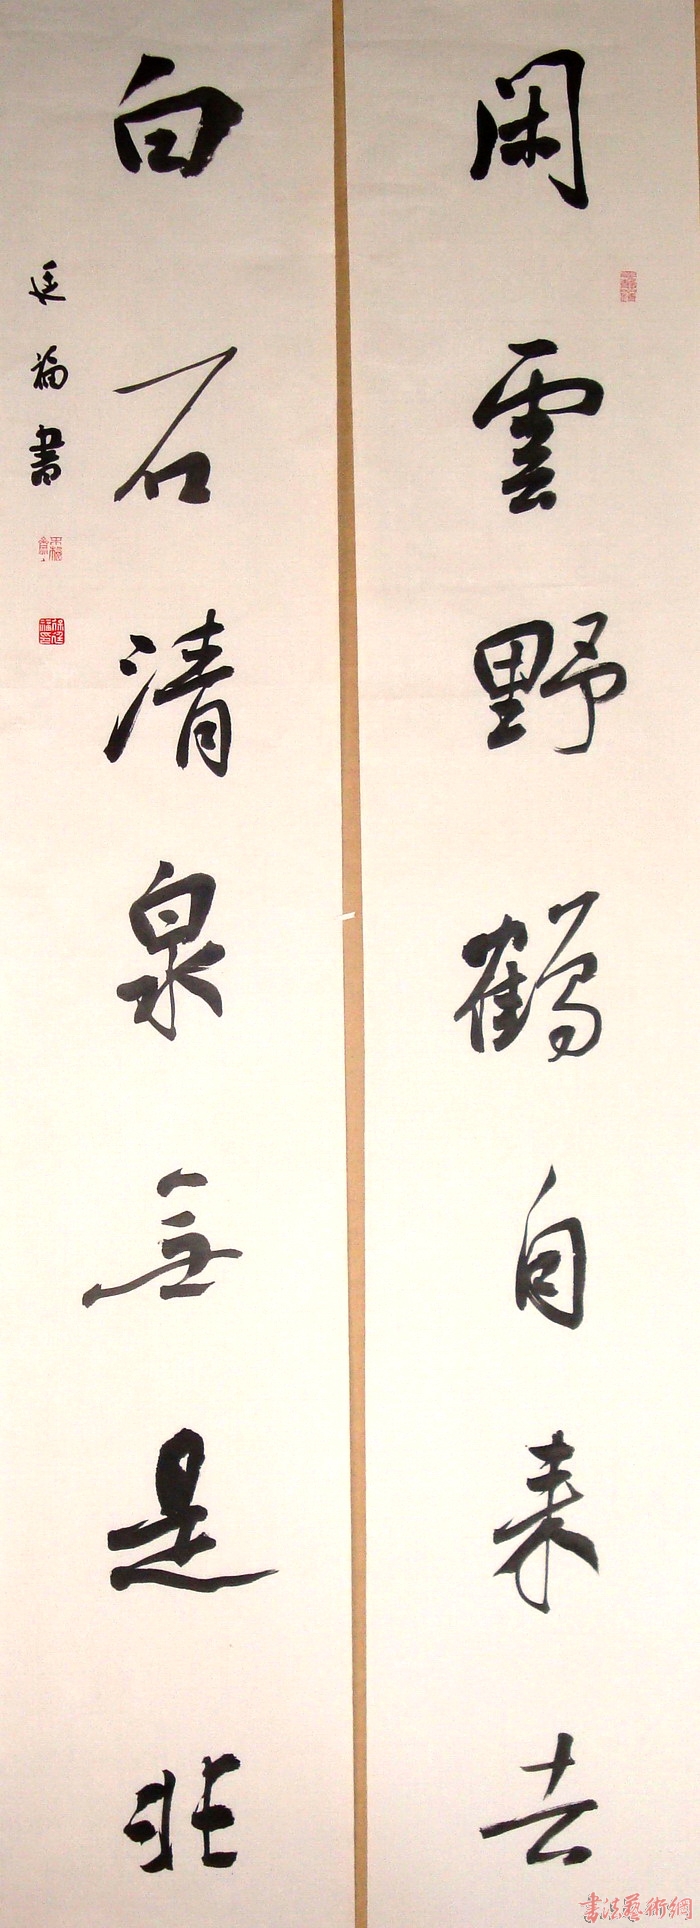 閑雲野鶴自来去
白石清泉無是非
廷福書
書法藝術網